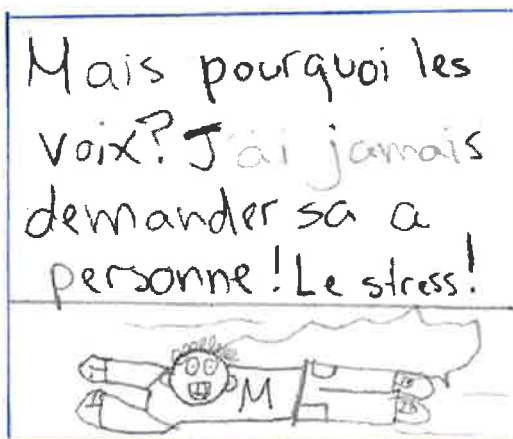 Mais pourquoi les
voix? J'ai jamais
demander sa a
personne! Le stress!
M